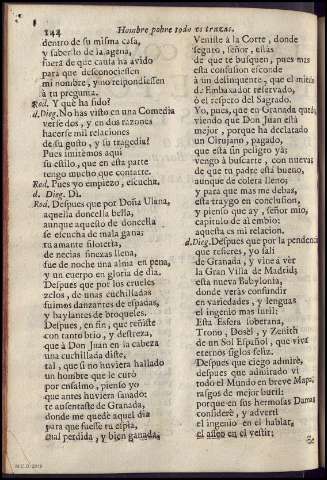 244
Hombre pobre todo es trazas.
dentro de su misma casa,
y saberlo de la agena,
fuera de que cauta ha avido
para que desconociessen
mi nombre, y no respondiessen
à tu pregunta.
Rod. Y què ha sido?
d.Dieg. No has visto en una Comedia
verse dos, y en dos razones
hacerse mil relaciones
de su gusto, y su tragedia?
Pues imitemos aqui
su estilo, que en esta parte
tengo mucho que contarte.
Rod. Pues yo empiezo, escucha.
d. Dieg. Di.
Rod. Despues que por Doña Ulana,
aquella doncella bella,
aunque aquesto de doncella
se escucha de mala gana;
tu amante
de necias finezas llena,
fue de noche una alma en pena,
y un cuerpo en gloria de dia.
Despues que por los crueles
zelos, de unas cuchilladas
fuimos danzantes de espadas,
y baylantes de broqueles.
Despues, en fin, que reñiste
con tanto brio, y destreza,
que à Don Juan en la cabeza
una cuchillada diste,
tal, que si no huviera hallado
un hombre que le curò
por ensalmo, pienso yo
que antes huviera sanado:
te ausentaste de Granada,
donde me quedè aquel dia
para que fuesse tu espia,
qual perdida, y bien ganada,
Veniste à la Corte, donde
seguro, señor, estàs
de que te busquen, pues mas
esta confusion esconde
à un delinquente, que el
de Embaxador reservado,
ò el respeto del Sagrado.
Yo, pues, que en Granada quedè,
viendo que Don Juan està
mejor, porque ha declarado
un Cirujano, pagado,
que està sin peligro ya;
vengo à buscarte, con nuevas
de que tu padre està bueno,
aunque de colera lleno;
y para que mas me debas,
esta traygo en conclusion,
y pienso que ay, señor mio,
capitulo de al embio:
aquesta es mi relacion.
d.Dieg. Despues que por la pendencia
que refieres, yo salì
de Granada, y vine à vèr
la Gran Villa de Madrid;
esta nueva Babylonia,
donde veràs confundir
en variedades, y lenguas
el ingenio mas sutil:
Esta Esfera soberana,
Trono, Dosèl, y Zenith
de un Sol Español, que viva
eternos siglos feliz.
Despues que ciego admirè,
despues que admirado vi
todo el Mundo en breve Mapa,
rasgos de mejor buril:
porque en sus hermosas Damas
considerè, y advertì
el ingenio en el hablar,
el asseo en el vestir;